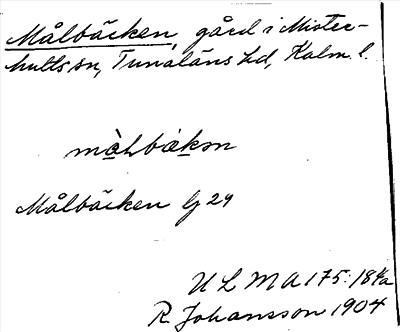 Målbäcken, gård i Mister-
hults sn, Tunaläns hd, Kalm. l.
màlbækən
Målbäcken Gg 29
U L M A 175:18 a
R. Johansson 1904